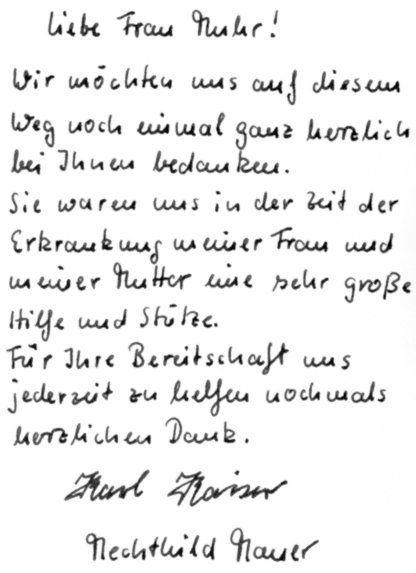 Liebe Frau Muhr!
Wir möchten uns auf diesem
Weg noch einmal ganz herzlich
bei Ihnen bedanken.
Sie waren uns in der Zeit der
Erkrankung meiner Frau und
meiner Mutter eine sehr große
Hilfe und Stütze.
Für Ihre Bereitschaft uns
jederzeit zu helfen nochmals
herzlichen Dank.
Karl Kaiser
Mechthild Maurer